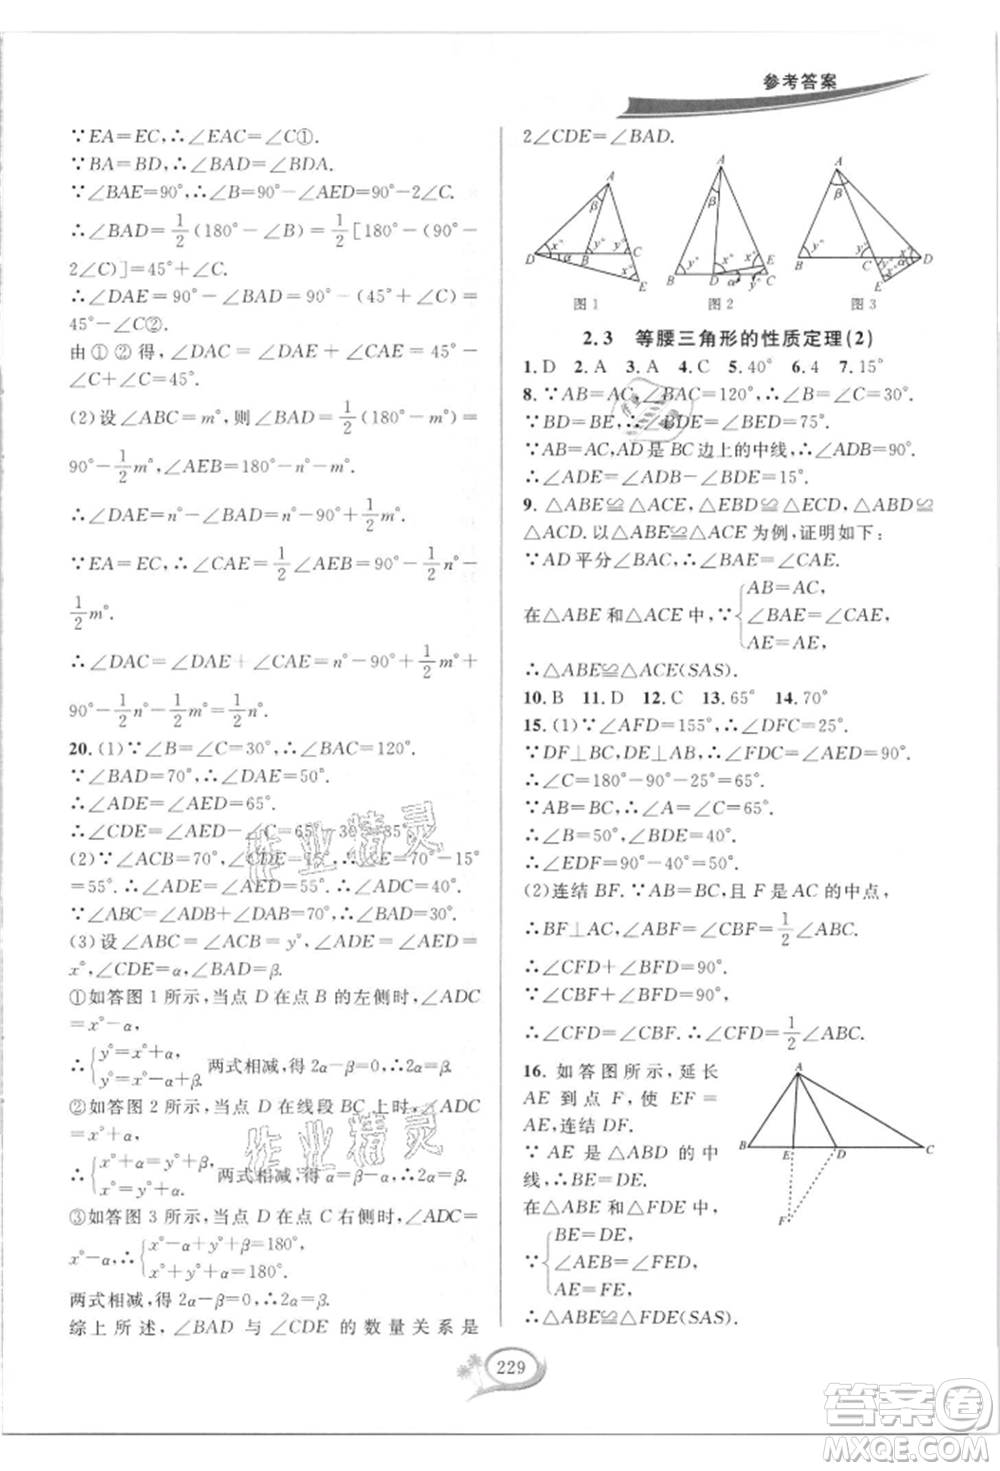 参考答案
∵EA=EC,∴∠EAC=∠C①.
∵BA=BD,∴∠BAD=∠BDA.
∵∠BAE=90°,∴∠B=90°-∠AED=90°-2∠C.
∴∠BAD=1/2(180°-∠B)=1/2[180°-(90°-
2∠C)]=45°+∠C.
∴∠DAE=90°-∠BAD=90°-(45°+∠C)=
45°-∠C②.
由①②得,∠DAC=∠DAE+∠EAC=45°-
∠C+∠C=45°.
(2)设∠ABC=m°,则∠BAD=1/2(180°-m°)=
90°-1/2m°,∠AEB=180°-n°-m°.
∴∠DAE=n°-∠BAD=n°-90°+1/2m°.
∵EA=EC,∴∠CAE=1/2∠AEB=90°-1/2n°-
1/2m°.
∴∠DAC=∠DAE+∠CAE=n°-90°+1/2m°+
90°-1/2n°-1/2m°=1/2n°.
20. (1)∵∠B=∠C=30°,∴∠BAC=120°.
∵∠BAD=70°,∴∠DAE=50°.
∴∠ADE=∠AED=65°.
∴∠CDE=∠AED-∠C=65°-30°=35°.
(2)∵∠ACB=70°,∠CDE=15°,∴∠E=70°-15°
=55°.∴∠ADE=∠AED=55°.
∵∠ABC=∠ADB+∠DAB=70°,∴∠BAD=30°.
(3)设∠ABC=∠ACB=y°,∠ADE=∠AED=
x°,∠CDE=α,∠BAD=β.
①如答图1所示,当点D在点B的左侧时,∠ADC
=x°-α,
∴{y°=x°+α,
y°=x°-α+β. 两式相减,得2α-β=0,∴2α=β.
②如答图2所示,当点D在线段BC上时,∠ADC
=x°+α,
∴{x°+α=y°+β,
x°=y°+α. 两式相减,得2α=β.
③如答图3所示,当点D在点C右侧时,∠ADC
=x°-α,∴{x°-α+y°+β=180°,
x°+y°+α=180°.
两式相减,得2α-β=0,∴2α=β.
综上所述,∠BAD与∠CDE的数量关系是
2∠CDE=∠BAD.
图1 图2 图3
2.3 等腰三角形的性质定理(2)
1. D 2. A 3. A 4. C 5. 40° 6. 4 7. 15°
8. ∵AB=AC,∠BAC=120°,∴∠B=30°.
∵BD=BE,∴∠BDE=∠BED=75°.
∵AB=AC,AD是BC边上的中线,∴∠ADB=90°.
∴∠ADE=∠ADB-∠BDE=15°.
9. △ABE≌△ACE,△EBD≌△ECD,△ABD≌
△ACD.以△ABE≌△ACE为例,证明如下:
∵AD平分∠BAC,∴∠BAE=∠CAE.
在△ABE和△ACE中,∵{AB=AC,
∠BAE=∠CAE,
AE=AE,
∴△ABE≌△ACE(SAS).
10. B 11. D 12. C 13. 65° 14. 70°
15. (1)∵∠AFD=155°,∴∠DFC=25°.
∵DF⊥BC,DE⊥AB,∴∠FDC=∠AED=90°.
∴∠C=180°-90°-25°=65°.
∵AB=BC,∴∠C=∠A=65°.
∴∠B=50°,∴∠BDE=40°.
∴∠EDF=90°-40°=50°.
(2)连结BF.∵AB=BC,且F是AC的中点,
∴BF⊥AC,∠ABF=∠CBF=1/2∠ABC.
∴∠CFD+∠BFD=90°.
∵∠CBF+∠BFD=90°,
∴∠CFD=∠CBF.∴∠CFD=1/2∠ABC.
16. 如答图所示,延长
AE到点F,使EF=
AE,连结DF.
∵AE是△ABD的中
线,∴BE=DE.
在△ABE和△FDE中,
∵{BE=DE,
∠AEB=∠FED,
AE=FE,
∴△ABE≌△FDE(SAS).
229
作业精灵
作业精灵
答案卷
MXQE.COM